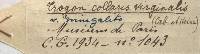 Trogon collaris virginalis
v. Pungalito (Cab. et Heine)
Museum de Paris
C.G. 1934 - n° 1043